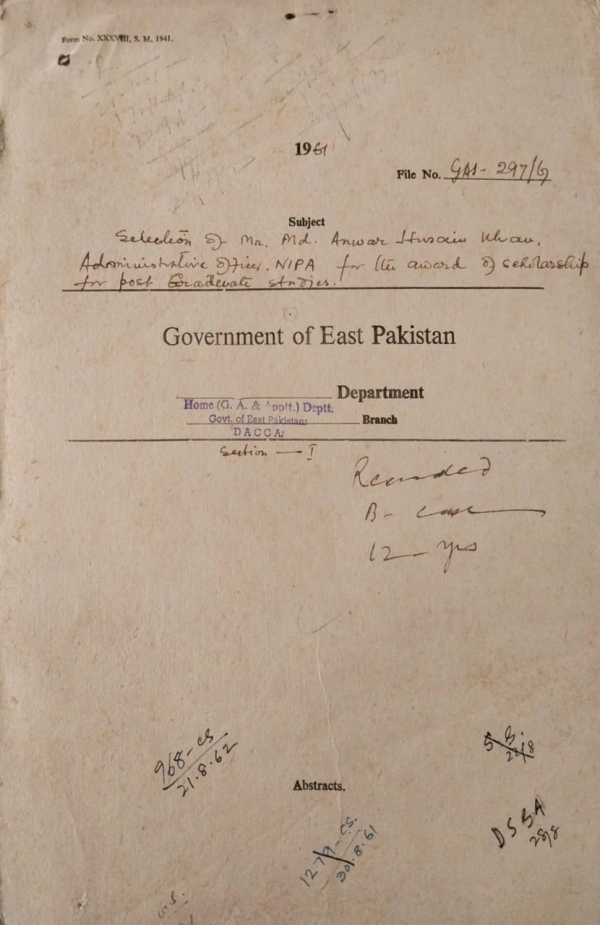 Form No. XXXVIII, S. M. 1941.
1961
File No. GAI- 297/61
Subject
Selection of Mr. Md. Anwar Husain Khan,
Administrative Officer, NIPA for the award of scholarship
for post Graduate studies.
Government of East Pakistan
Department
Home (G. A. & Apptt.) Deptt.
Govt. of East Pakistan,
Branch
DACCA.
Section — I
Recorded
B-
12 - yrs
968-CS
21.8.62
Abstracts.
1279-CS.
30.8.61
28/8